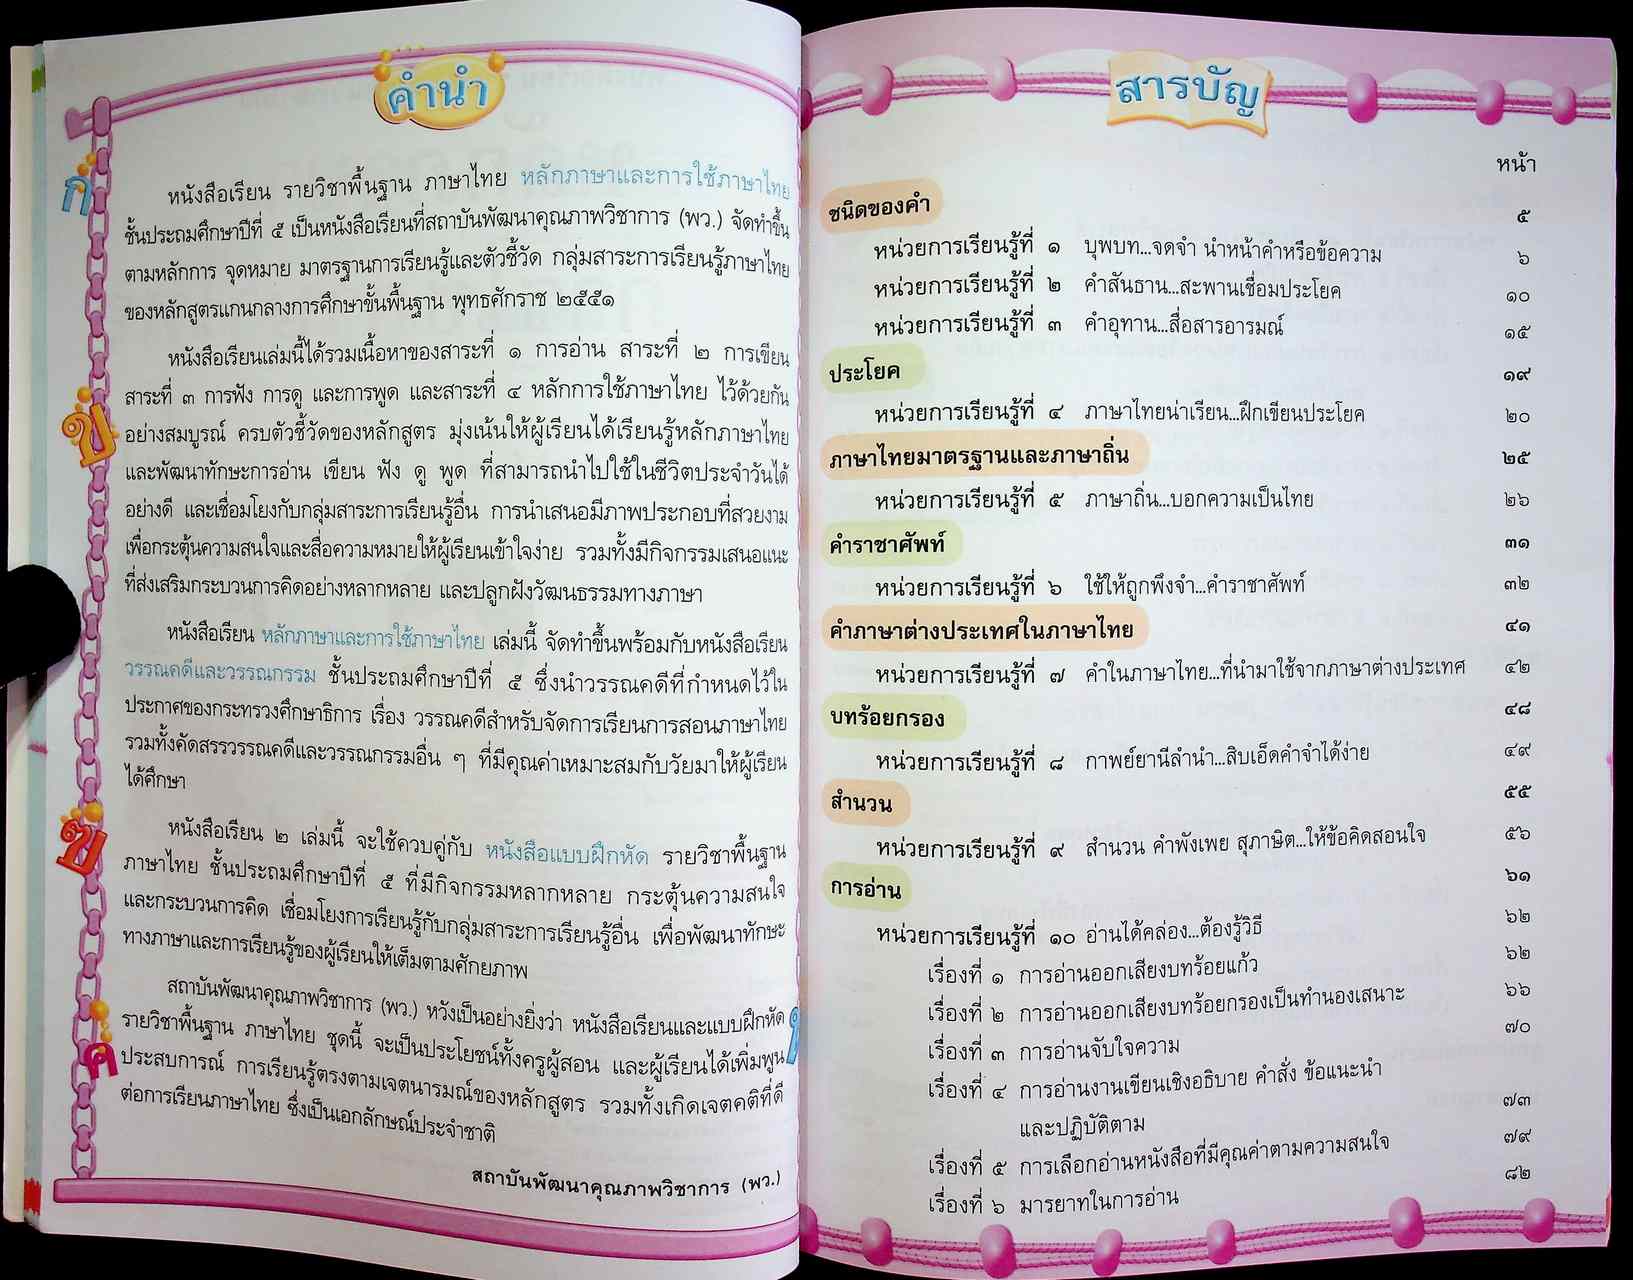 คำนำ
หนังสือเรียน รายวิชาพื้นฐาน ภาษาไทย หลักภาษาและการใช้ภาษาไทย
ชั้นประถมศึกษาปีที่ ๕ เป็นหนังสือเรียนที่สถาบันพัฒนาคุณภาพวิชาการ (พว.) จัดทำขึ้น
ตามหลักการ จุดหมาย มาตรฐานการเรียนรู้และตัวชี้วัด กลุ่มสาระการเรียนรู้ภาษาไทย
ของหลักสูตรแกนกลางการศึกษาขั้นพื้นฐาน พุทธศักราช ๒๕๕๑
หนังสือเรียนเล่มนี้ได้รวมเนื้อหาของสาระที่ ๑ การอ่าน สาระที่ ๒ การเขียน
สาระที่ ๓ การฟัง การดู และการพูด และสาระที่ ๔ หลักการใช้ภาษาไทย ไว้ด้วยกัน
อย่างสมบูรณ์ ครบตัวชี้วัดของหลักสูตร มุ่งเน้นให้ผู้เรียนได้เรียนรู้หลักภาษาไทย
และพัฒนาทักษะการอ่าน เขียน ฟัง ดู พูด ที่สามารถนำไปใช้ในชีวิตประจำวันได้
อย่างดี และเชื่อมโยงกับกลุ่มสาระการเรียนรู้อื่น การนำเสนอมีภาพประกอบที่สวยงาม
เพื่อกระตุ้นความสนใจและสื่อความหมายให้ผู้เรียนเข้าใจง่าย รวมทั้งมีกิจกรรมเสนอแนะ
ที่ส่งเสริมกระบวนการคิดอย่างหลากหลาย และปลูกฝังวัฒนธรรมทางภาษา
หนังสือเรียน หลักภาษาและการใช้ภาษาไทย เล่มนี้ จัดทำขึ้นพร้อมกับหนังสือเรียน
วรรณคดีและวรรณกรรม ชั้นประถมศึกษาปีที่ ๕ ซึ่งนำวรรณคดีที่กำหนดไว้ใน
ประกาศของกระทรวงศึกษาธิการ เรื่อง วรรณคดีสำหรับจัดการเรียนการสอนภาษาไทย
รวมทั้งคัดสรรวรรณคดีและวรรณกรรมอื่น ๆ ที่มีคุณค่าเหมาะสมกับวัยมาให้ผู้เรียน
ได้ศึกษา
หนังสือเรียน ๒ เล่มนี้ จะใช้ควบคู่กับ หนังสือแบบฝึกหัด รายวิชาพื้นฐาน
ภาษาไทย ชั้นประถมศึกษาปีที่ ๕ ที่มีกิจกรรมหลากหลาย กระตุ้นความสนใจ
และกระบวนการคิด เชื่อมโยงการเรียนรู้กับกลุ่มสาระการเรียนรู้อื่น เพื่อพัฒนาทักษะ
ทางภาษาและการเรียนรู้ของผู้เรียนให้เต็มตามศักยภาพ
สถาบันพัฒนาคุณภาพวิชาการ (พว.) หวังเป็นอย่างยิ่งว่า หนังสือเรียนและแบบฝึกหัด
รายวิชาพื้นฐาน ภาษาไทย ชุดนี้ จะเป็นประโยชน์ทั้งครูผู้สอน และผู้เรียนได้เพิ่มพูน
ประสบการณ์ การเรียนรู้ตรงตามเจตนารมณ์ของหลักสูตร รวมทั้งเกิดเจตคติที่ดี
ต่อการเรียนภาษาไทย ซึ่งเป็นเอกลักษณ์ประจำชาติ
สถาบันพัฒนาคุณภาพวิชาการ (พว.)
ก
ข
ฃ
ค
สารบัญ
หน้า
ชนิดของคำ ๕
หน่วยการเรียนรู้ที่ ๑ บุพบท...จดจำ นำหน้าคำหรือข้อความ ๖
หน่วยการเรียนรู้ที่ ๒ คำสันธาน...สะพานเชื่อมประโยค ๑๐
หน่วยการเรียนรู้ที่ ๓ คำอุทาน...สื่อสารอารมณ์ ๑๕
ประโยค ๑๙
หน่วยการเรียนรู้ที่ ๔ ภาษาไทยน่าเรียน...ฝึกเขียนประโยค ๒๐
ภาษาไทยมาตรฐานและภาษาถิ่น ๒๕
หน่วยการเรียนรู้ที่ ๕ ภาษาถิ่น...บอกความเป็นไทย ๒๖
คำราชาศัพท์ ๓๑
หน่วยการเรียนรู้ที่ ๖ ใช้ให้ถูกพึงจำ...คำราชาศัพท์ ๓๒
คำภาษาต่างประเทศในภาษาไทย ๔๑
หน่วยการเรียนรู้ที่ ๗ คำในภาษาไทย...ที่นำมาใช้จากภาษาต่างประเทศ ๔๒
บทร้อยกรอง ๔๘
หน่วยการเรียนรู้ที่ ๘ กาพย์ยานีลำนำ...สิบเอ็ดคำจำได้ง่าย ๔๙
สำนวน ๕๕
หน่วยการเรียนรู้ที่ ๙ สำนวน คำพังเพย สุภาษิต...ให้ข้อคิดสอนใจ ๕๖
การอ่าน ๖๑
หน่วยการเรียนรู้ที่ ๑๐ อ่านได้คล่อง...ต้องรู้วิธี ๖๒
เรื่องที่ ๑ การอ่านออกเสียงบทร้อยแก้ว ๖๒
เรื่องที่ ๒ การอ่านออกเสียงบทร้อยกรองเป็นทำนองเสนาะ ๖๖
เรื่องที่ ๓ การอ่านจับใจความ ๗๐
เรื่องที่ ๔ การอ่านงานเขียนเชิงอธิบาย คำสั่ง ข้อแนะนำ
และปฏิบัติตาม ๗๓
เรื่องที่ ๕ การเลือกอ่านหนังสือที่มีคุณค่าตามความสนใจ ๗๙
เรื่องที่ ๖ มารยาทในการอ่าน ๘๒